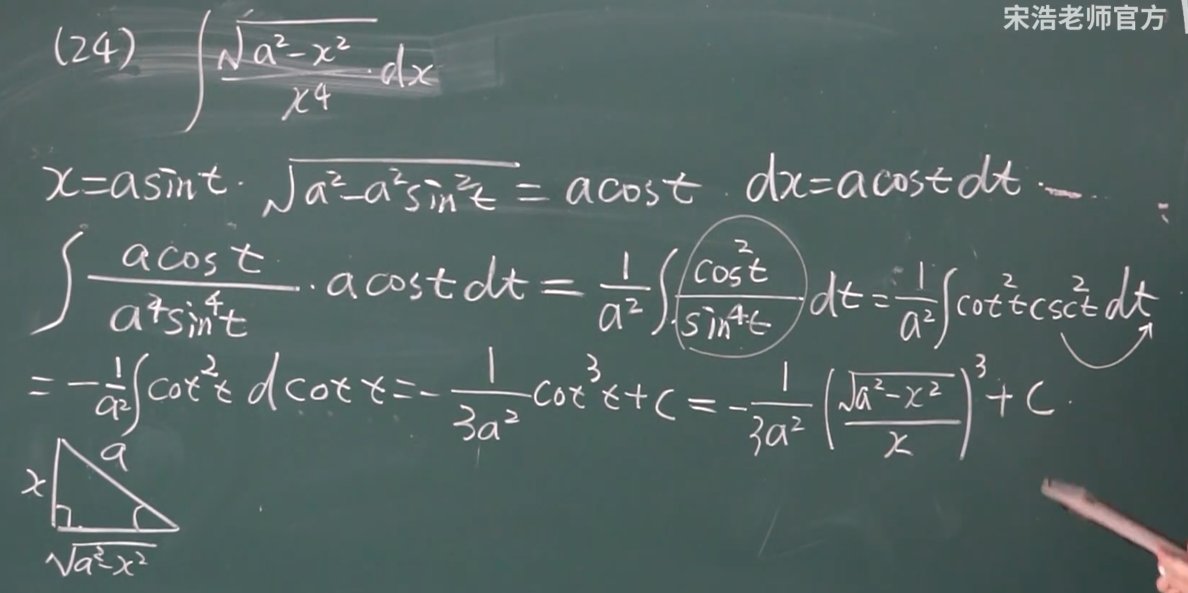 宋浩老师官方
(24) ∫ √(a²-x²)/x⁴ · dx
x=asint · √(a²-a²sin²t) = acost · dx=acostdt ·
∫ acost/(a⁴sin⁴t) · acostdt = 1/a² ∫ cos²t/sin⁴t dt = 1/a² ∫cot²tcsc²tdt
= -1/a² ∫cot²t dcott = -1/(3a²) cot³t+C = -1/(3a²) (√(a²-x²)/x)³+C.
a
x
√(a²-x²)